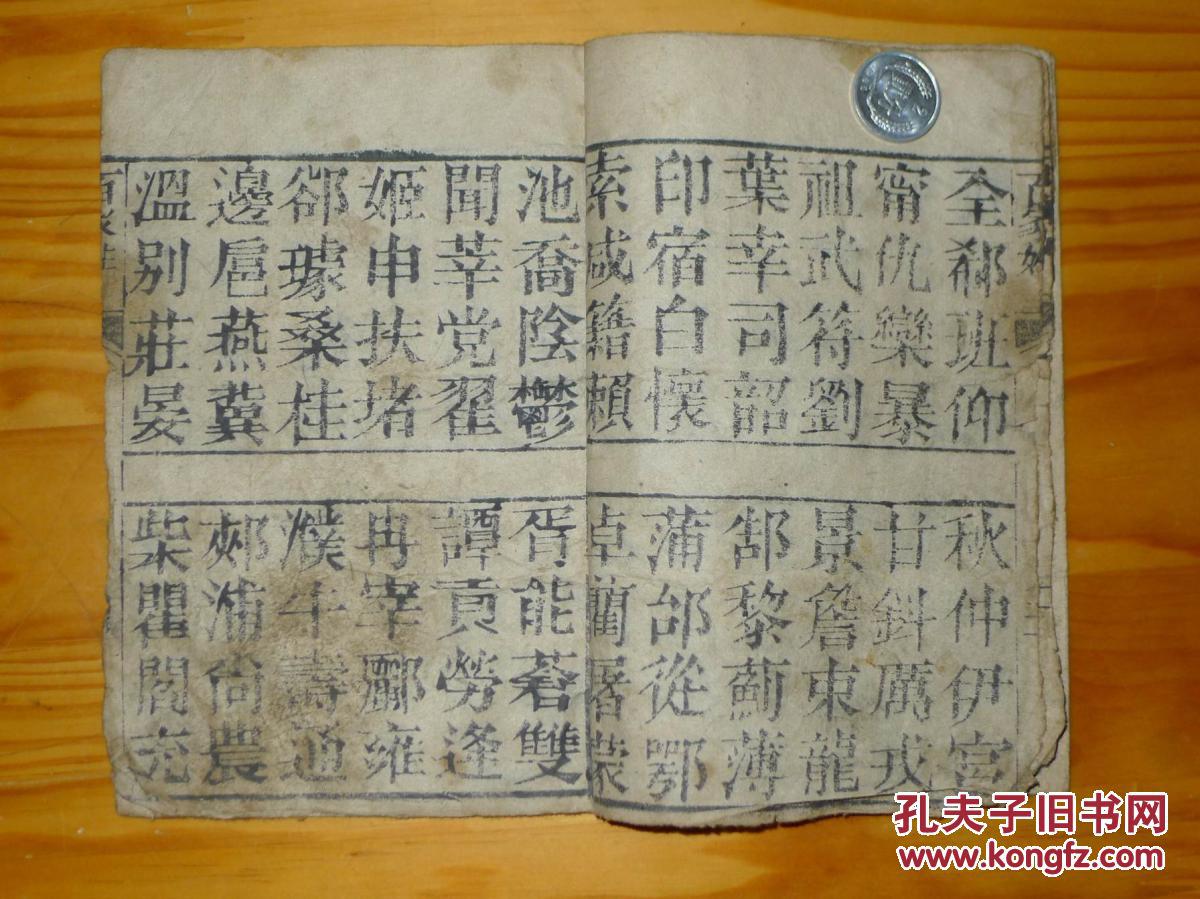 百家姓
全郗班仰
秋仲伊宮
甯仇欒暴
甘鈄厲戎
祖武符劉
景詹束龍
葉幸司韶
郜黎薊薄
印宿白懷
蒲邰從鄂
索咸籍賴
卓藺屠蒙
池喬陰鬱
胥能蒼雙
聞莘党翟
譚貢勞逄
姬申扶堵
冉宰酈雍
郤璩桑桂
濮牛壽通
邊扈燕冀
郟浦尚農
溫別莊晏
柴瞿閻充
孔夫子旧书网
www.kongfz.com